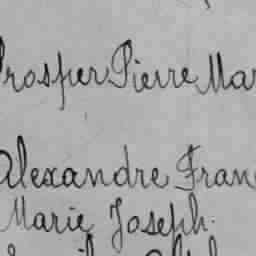 Prosper Pierre Mar
Alexandre Fran
Marie Joseph.